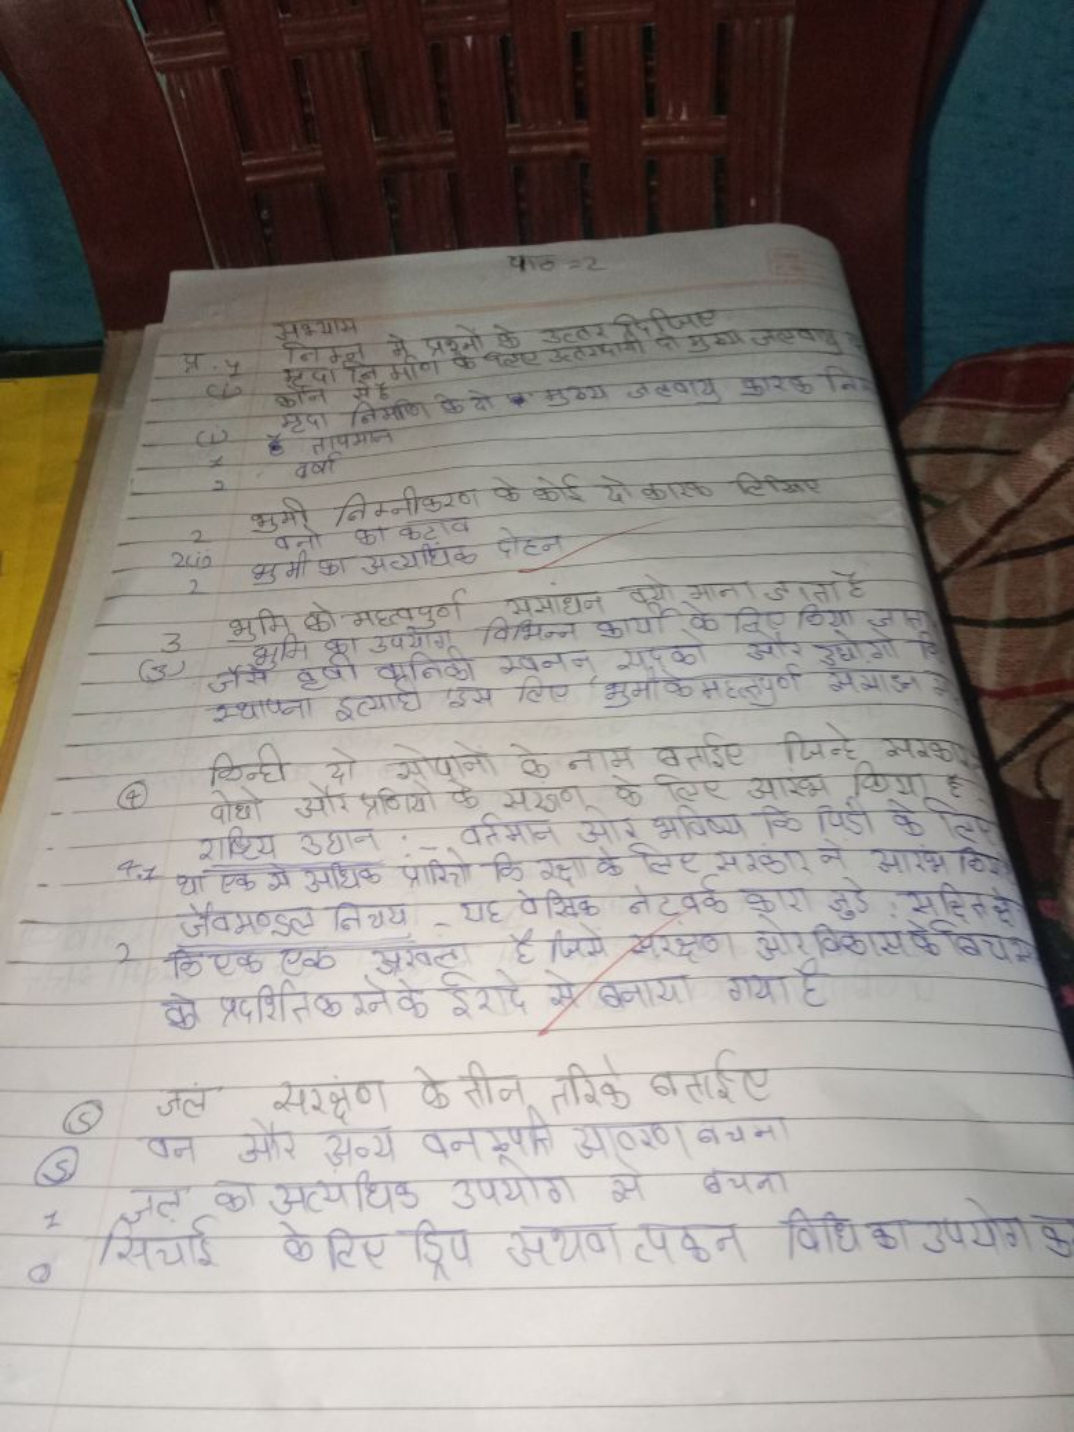 पाठ = 2
अभ्यास
प्र. 4 निम्न में प्रश्नों के उत्तर दिजिए
(1) मृदा निर्माण के लिए उत्तरदायी दो मुख्य जलवायु
कौन से है
(1) मृदा निर्माण के दो मुख्य जलवायु कारक
1 तापमान
2 वर्षा
2 भुमी निम्नीकरण के कोई दो कारक लिखिए
2(i) वनो का कटाव
2 भुमी का अत्यधिक दोहन
3 भुमि को महत्वपुर्ण संसांधन क्यो माना जाता है
(3) भुमि का उपयोग विभिन्न कार्यो के लिए किया जाता
जैसे कृषी वानिकी खनन, सड़को और उद्योगो कि
स्थापना इत्यादि इस लिए भुमी के महत्वपुर्ण
(4) किन्ही दो सोपानों के नाम बताईए जिन्हे सरकार
पोधो और प्रणियो के सरक्षण के लिए आरंभ किया है
4.1 राष्ट्रिय उधान :- वर्तमान और भविष्य कि पिडी के लिए
था एक से अधिक कि रक्षा के लिए सरकार ने आरंभ किया
2 जैवमण्डल निचय - यह वेश्विक नेटवर्क द्वारा जुडे
कि एक एक श्रखला है जिसे सरंक्षण और विकास के बिच
को प्रदर्शित करने के ईरादे से बनाया गया है
(5) जल सरक्षंण के तीन तरिके बताईए
(5) वन और अन्य वनस्पति आवरण बचना
1 जल का अत्यधिक उपयोग से बचना
सिचाई के लिए ड्रिप अथवा विधि का उपयोग